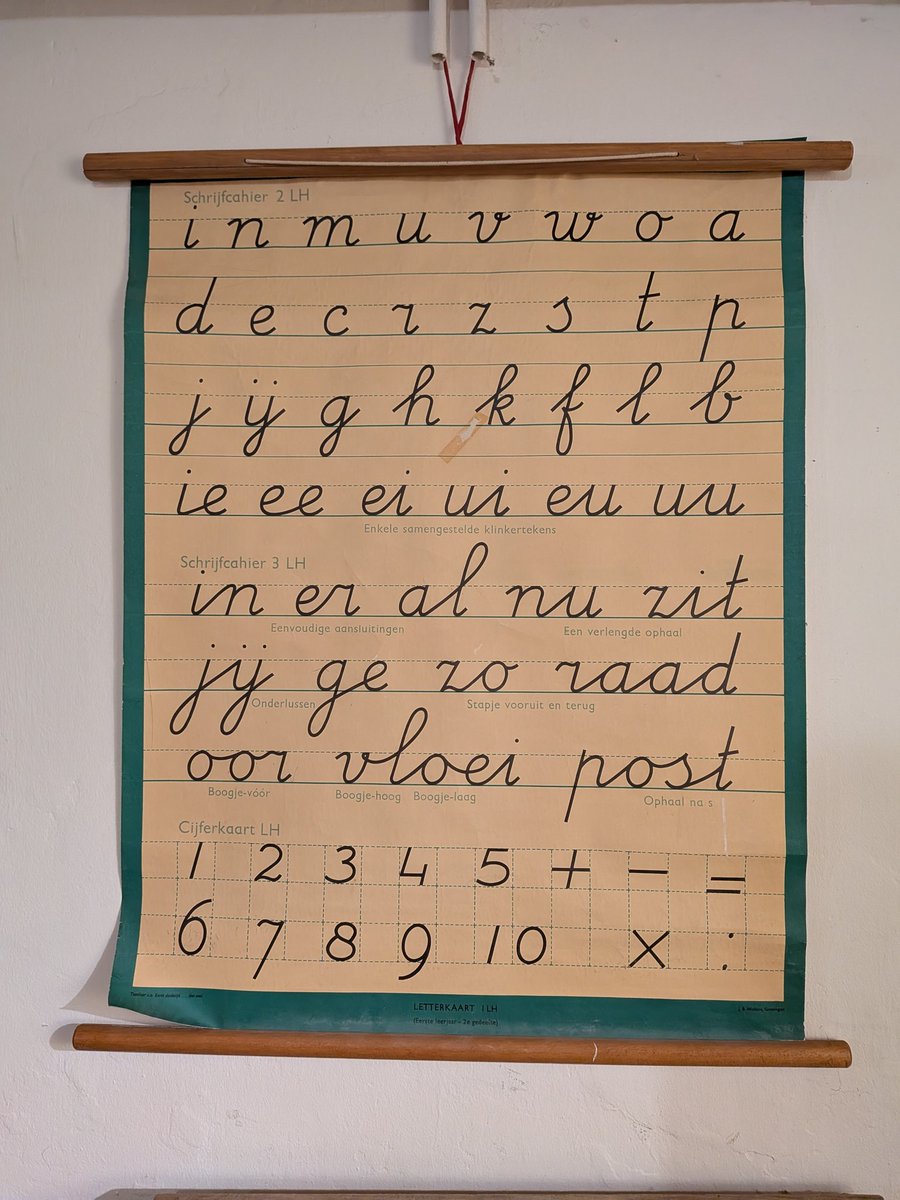 Schrijfcahier 2 LH
i n m u v w o a
d e c r z s t p
j ij g h k f l b
ie ee ei ui eu uu
Enkele samengestelde klinkertekens
Schrijfcahier 3 LH
in er al nu zit
Eenvoudige aansluitingen Een verlengde ophaal
jij ge zo raad
Onderlussen Stapje vooruit en terug
oor vloei post
Boogje-vóór Boogje-hoog Boogje-laag Ophaal na s
Cijferkaart LH
1 2 3 4 5 + − =
6 7 8 9 10 × :
LETTERKAART 1 LH
(Eerste leerjaar – 2e gedeelte)